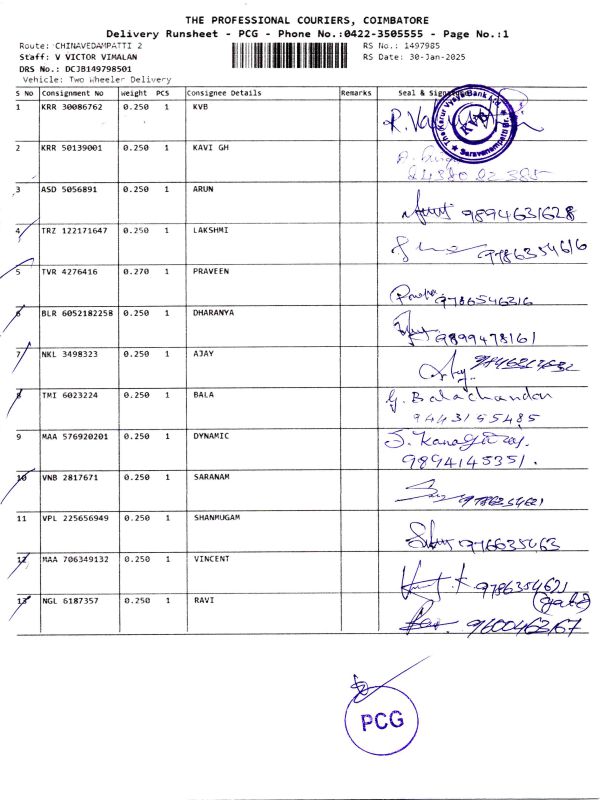 THE PROFESSIONAL COURIERS, COIMBATORE
Delivery Runsheet - PCG - Phone No.:0422-3505555 - Page No.:1
Route: CHINAVEDAMPATTI 2 RS No.: 1497985
Staff: V VICTOR VIMALAN RS Date: 30-Jan-2025
DRS No.: DCJB149798501
Vehicle: Two Wheeler Delivery
S No Consignment No Weight PCS Consignee Details Remarks Seal &
1 KRR 30086762 0.250 1 KVB
The Karur Vysya Bank Ltd
KVB
Saravanampatti Br.
2 KRR 50139001 0.250 1 KAVI GH
3 ASD 5056891 0.250 1 ARUN
9894631628
4 TRZ 122171647 0.250 1 LAKSHMI
9786354616
5 TVR 4276416 0.270 1 PRAVEEN
9786546316
6 BLR 6052182258 0.250 1 DHARANYA
9899478161
7 NKL 3498323 0.250 1 AJAY
8 TMI 6023224 0.250 1 BALA
G. Balachandar
9443155485
9 MAA 576920201 0.250 1 DYNAMIC
S. Kanagaraj.
9894145351.
10 VNB 2817671 0.250 1 SARANAM
11 VPL 225656949 0.250 1 SHANMUGAM
976635463
12 MAA 706349132 0.250 1 VINCENT
9786354621
(gate)
13 NGL 6187357 0.250 1 RAVI
9600463167
PCG